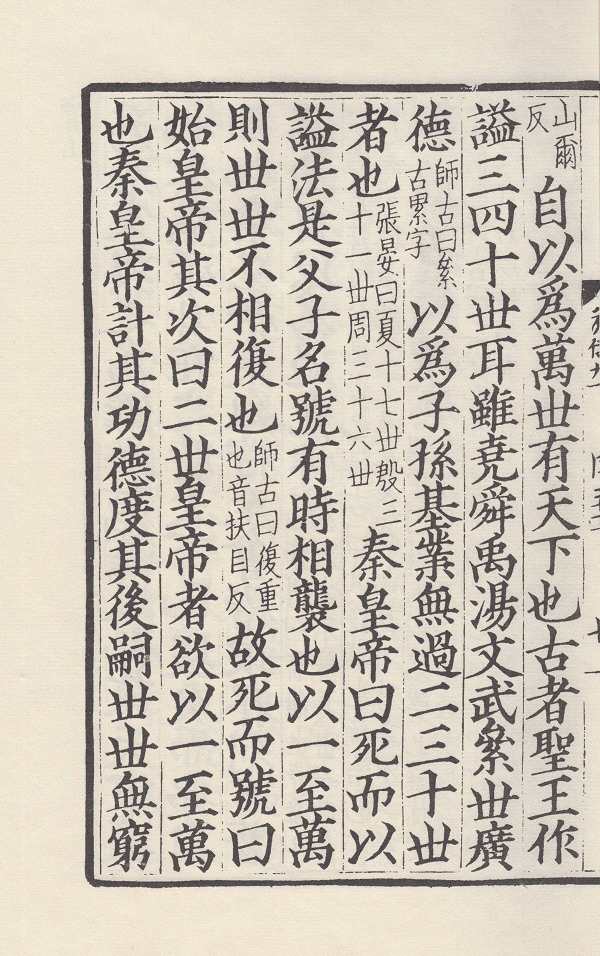 山爾反自以爲萬丗有天下也古者聖王作
謚三四十丗耳雖堯舜禹湯文武絫丗廣
德師古曰絫古累字以爲子孫基業無過二三十丗
者也張晏曰夏十七丗殷三十一丗周三十六丗秦皇帝曰死而以
謚法是父子名號有時相襲也以一至萬
則丗丗不相復也師古曰復重也音扶目反故死而號曰
始皇帝其次曰二丗皇帝者欲以一至萬
也秦皇帝計其功德度其後嗣丗丗無窮